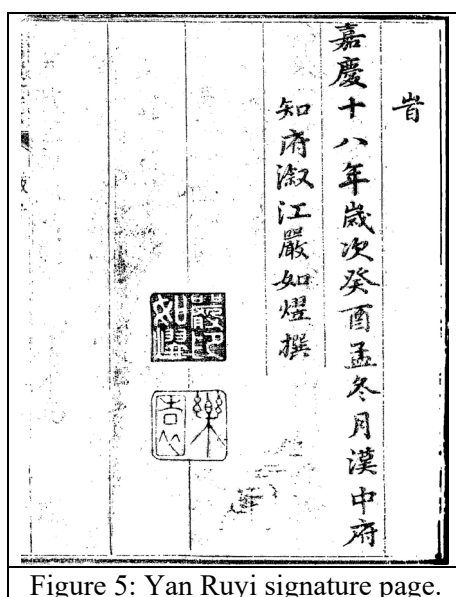 旹
嘉慶十八年歲次癸酉孟冬月漢中府
知府溆江嚴如熤撰
嚴印如熤
樂園
Figure 5: Yan Ruyi signature page.